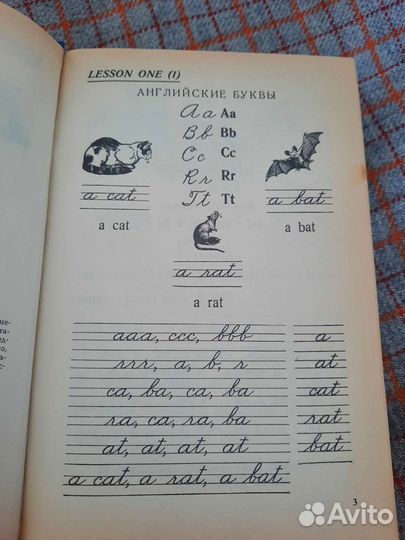 LESSON ONE (1)
АНГЛИЙСКИЕ БУКВЫ
Aa Aa
Bb Bb
Cc Cc
Rr Rr
Tt Tt
a cat
a cat
a bat
a bat
a rat
a rat
aaa, ccc, bbb
rrr, a, b, r
ca, ba, ca, ba
ra, ca, ra, ba
at, at, at, at
a cat, a rat, a bat
a
at
cat
rat
bat
3
Avito